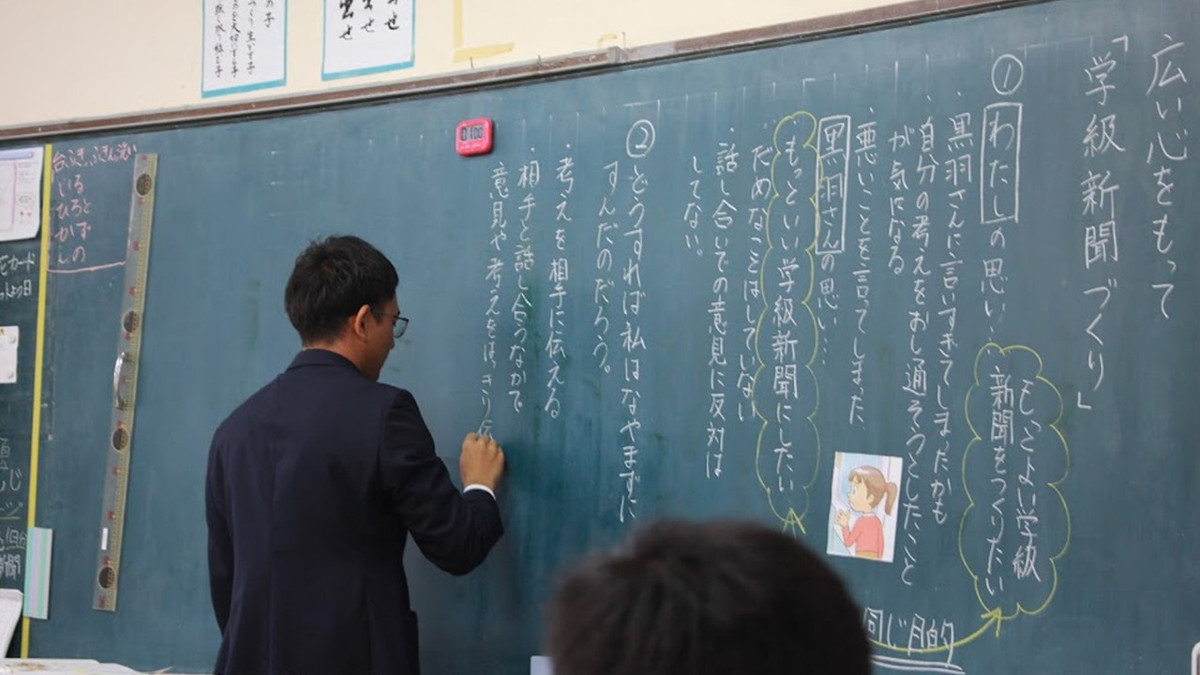 広い心をもって
「学級新聞づくり」
① わたしの思い…
もっとよい学級
新聞をつくりたい
・黒羽さんに言いすぎてしまったかも
・自分の考えをおし通そうとしたこと
が気になる
・悪いことを言ってしまった
黒羽さんの思い…
もっといい学級新聞にしたい
・だめなことはしていない
・話し合いでの意見に反対は
してない。
同じ目的
② どうすれば私はなやまずに
すんだのだろう。
・考えを相手に伝える
・相手と話し合うなかで
意見や考えをはっきり
いる
ひろと
かずの
カード